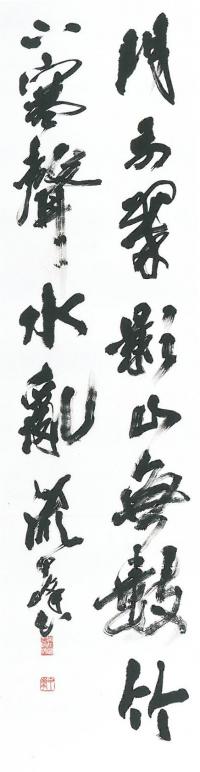 門前翠影山無數竹
下寒聲水亂流